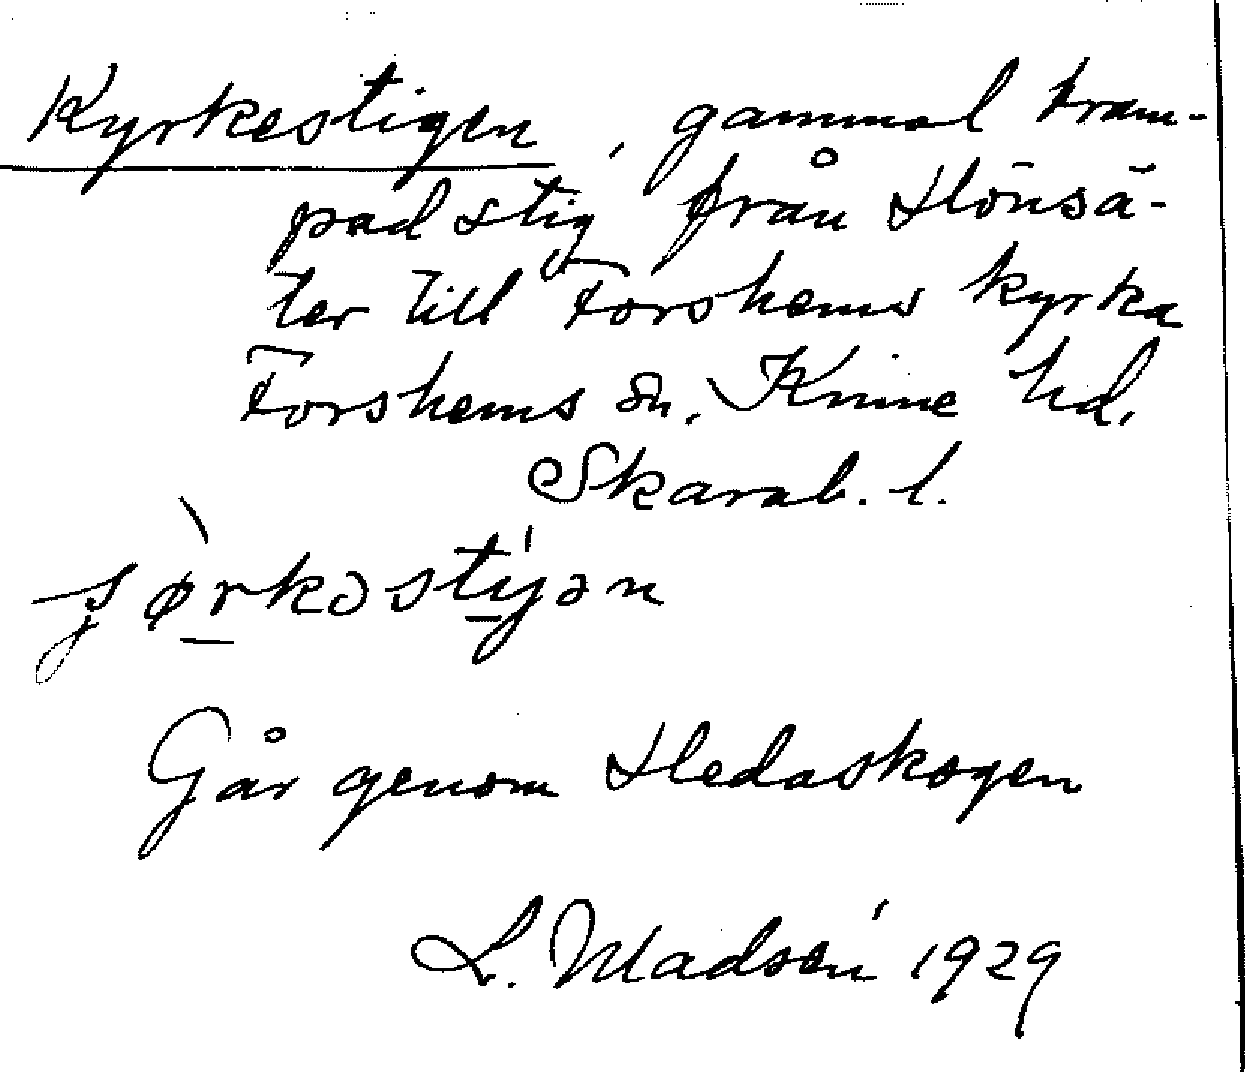 Kyrkestigen, gammal tram-
pad stig från Hönsä-
ter till Forshems kyrka
Forshems sn. Kinne hd.
Skarab. l.
Går genom Hedaskogen
L. Madsén 1929